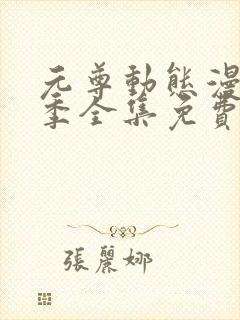 元尊動態漫
季全集免費
張麗娜